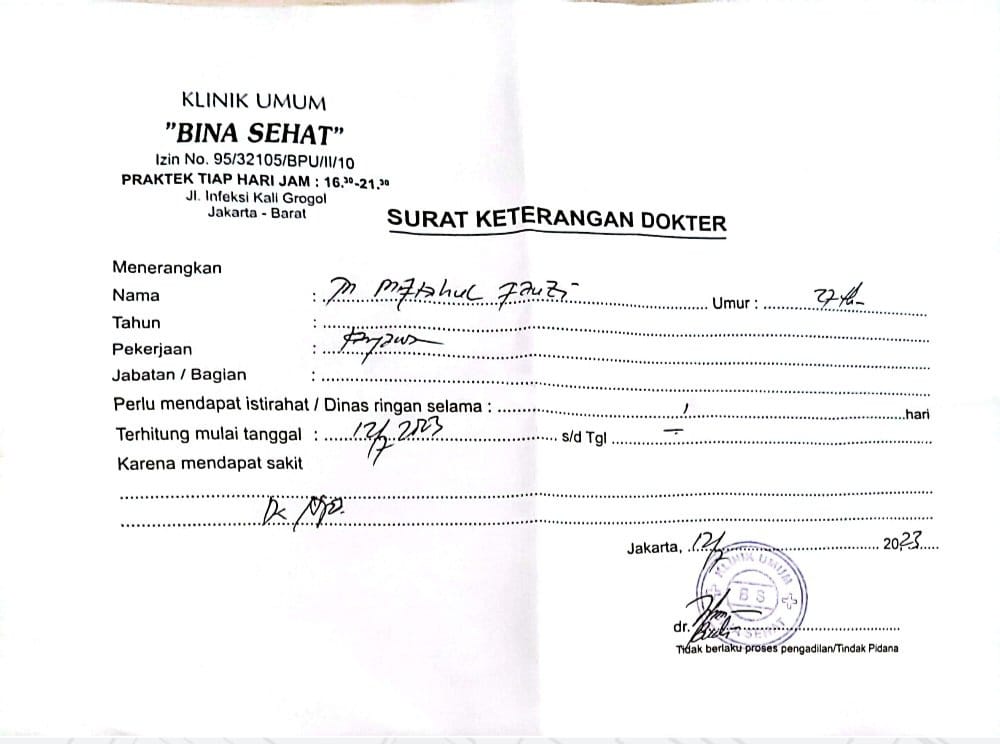 KLINIK UMUM
"BINA SEHAT"
Izin No. 95/32105/BPU/II/10
PRAKTEK TIAP HARI JAM : 16.30-21.30
Jl. Infeksi Kali Grogol
Jakarta - Barat
SURAT KETERANGAN DOKTER
Menerangkan
Nama : M Miftahul Fauzi Umur : 27 th
Tahun :
Pekerjaan : Karyawan
Jabatan / Bagian :
Perlu mendapat istirahat / Dinas ringan selama : 1 hari
Terhitung mulai tanggal : 12/7 2023 s/d Tgl -
Karena mendapat sakit
Jakarta, 12/7 2023
KLINIK UMUM
BS
BINA SEHAT
dr.
Tidak berlaku proses pengadilan/Tindak Pidana